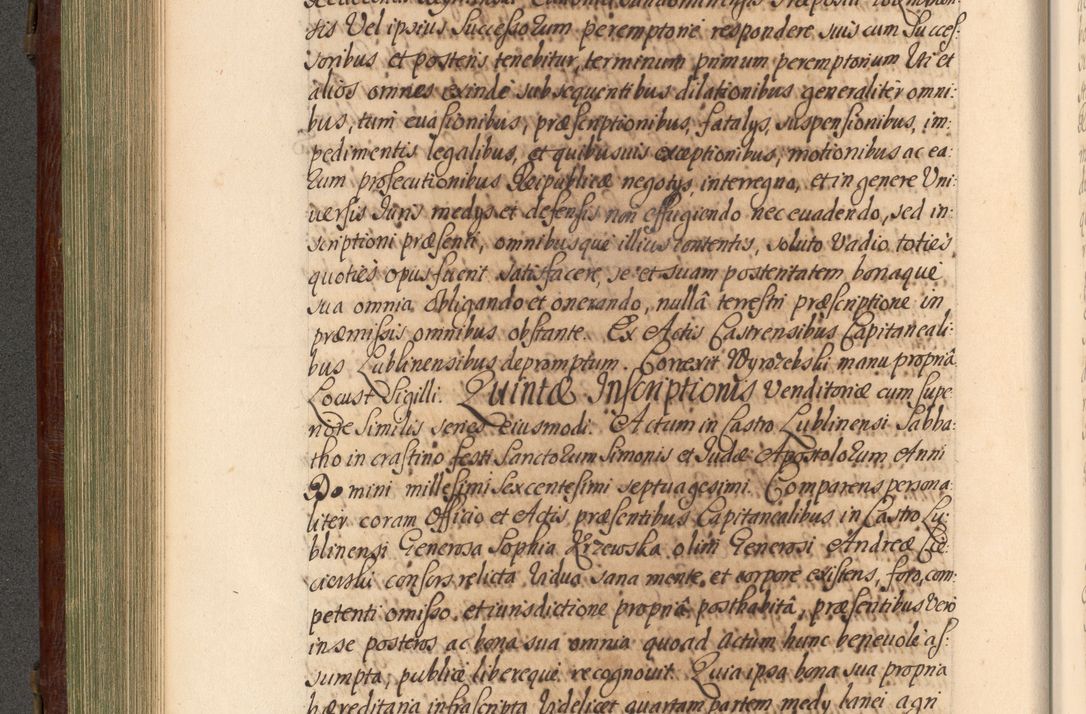 sis Vel ipsius Successorum peremptorie respondere suis cum Succes:
soribus et posteris tenebitur, terminum primum peremptorium Uti et
alios omnes exinde subsequentibus dilationibus generaliter omni:
bus, tum euasionibus, præscriptionibus, fatalys, suspensionibus, im:
pedimentis legalibus, et quibusuis exceptionibus, motionibus ac ea:
rum prosecutionibus Reipublicæ negotys, interregno, et in genere Uni:
uersis Juris medys et defensis non effugiendo nec euadendo, sed in:
scriptioni præsenti, omnibusque illius contentis, soluto vadio toties
quoties opus fuerit satisfacere, se et suam posteritatem bonaque
sua omnia obligando et onerando, nullâ terrestri præscriptione in
præmissis omnibus obstante. Ex Actis Castrensibus Capitaneali:
bus Lublinensibus depromptum. Correxit Wyrozebski manu propriâ
Locus Sigilli. Quintæ Inscriptionis Venditoriæ cum supe:
riore similis series eiusmodi. Actum in Castro Lublinensi Sabba:
tho in crastino festi Sanctorum Simonis et Judæ Apostolorum Anni
Domini millesimi sexcentesimi septuagesimi. Comparens persona:
liter coram Officio et Actis præsentibus Capitanealibus in Castro Lu:
blinensi Generosa Sophia Krzewska olim Generosi Andreæ
consors relicta vidua sana mente et corpore existens, foro com:
petenti omisso, et iurisdictione propriâ posthabitâ, præsentibus Vero
in se posteros ac bona sua omnia quoad actum hunc beneuole as:
sumpta, publice libereque recognouit. Quia ipsa bona sua propria
hæreditaria infrascripta Videlicet quartam partem medy lanei agri